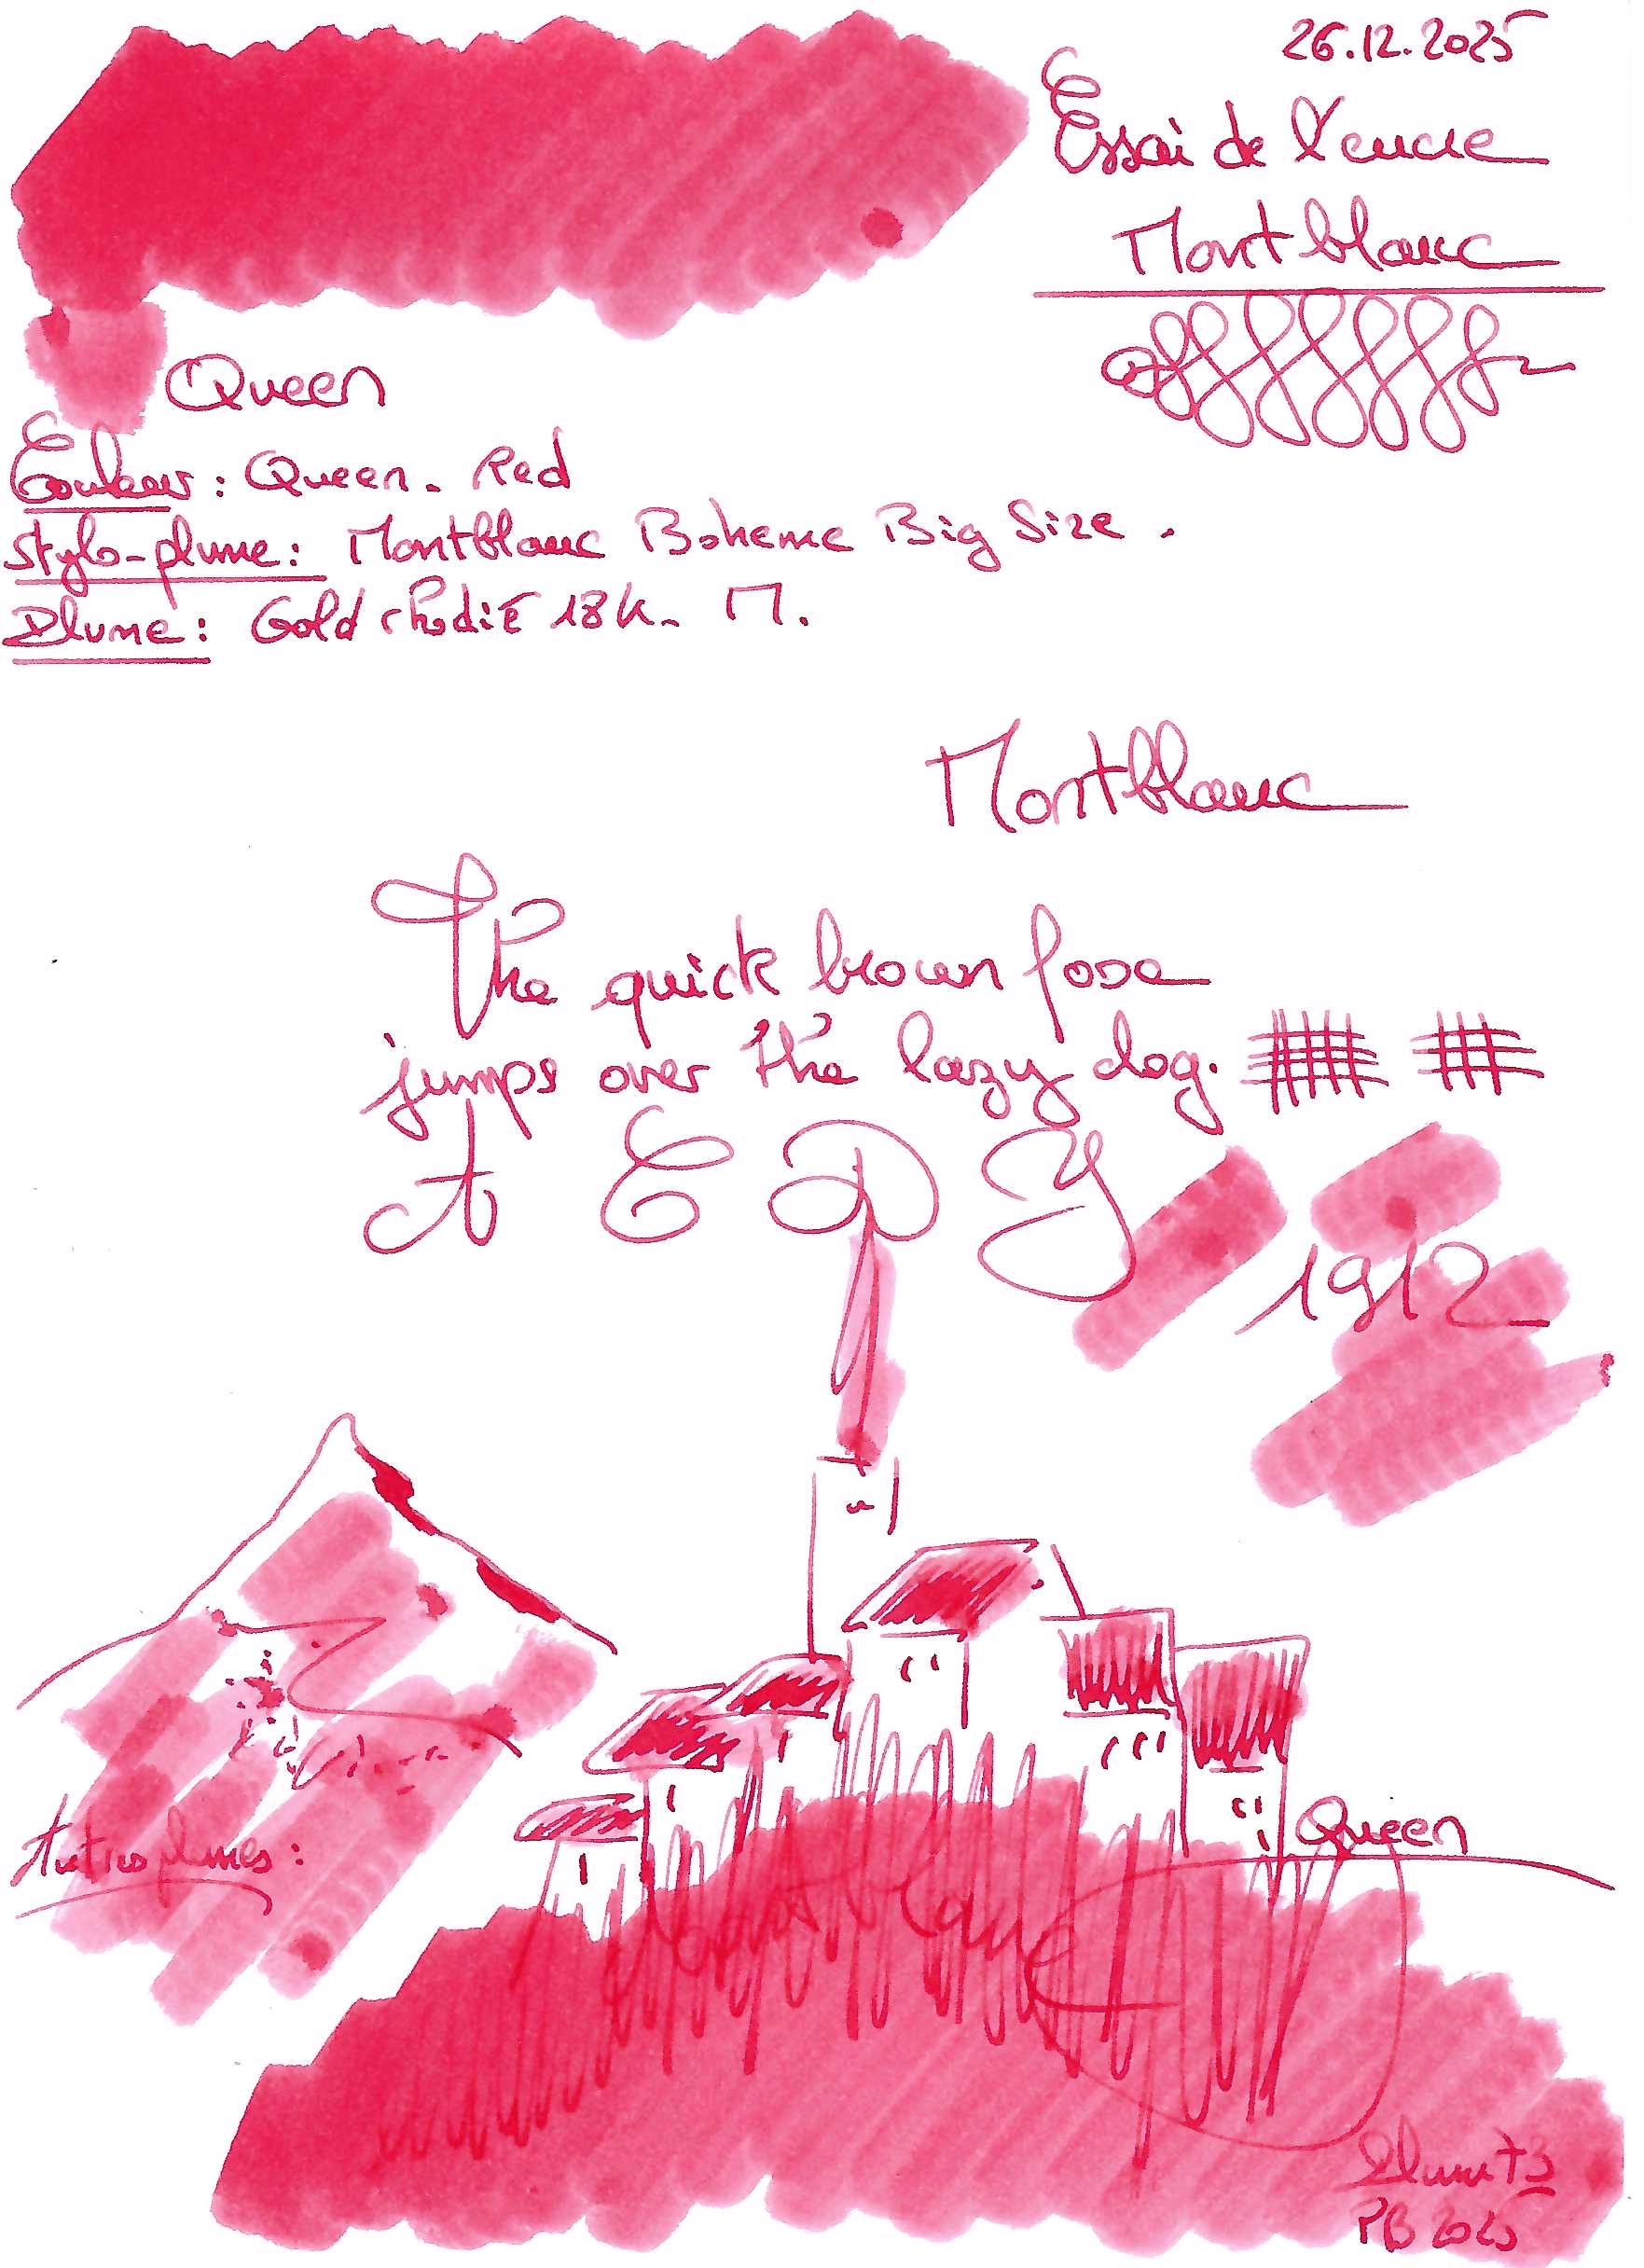 26.12.2025
Essai de l'encre
Montblanc
Queen
Couleur : Queen - Red
Stylo-plume : Montblanc Boheme Big Size .
Plume : Gold rhodié 18k - M.
Montblanc
The quick brown fox
jumps over the lazy dog.
A E P Y
1912
Autres plumes :
Queen
Montblanc
Plume 73
PB 2025